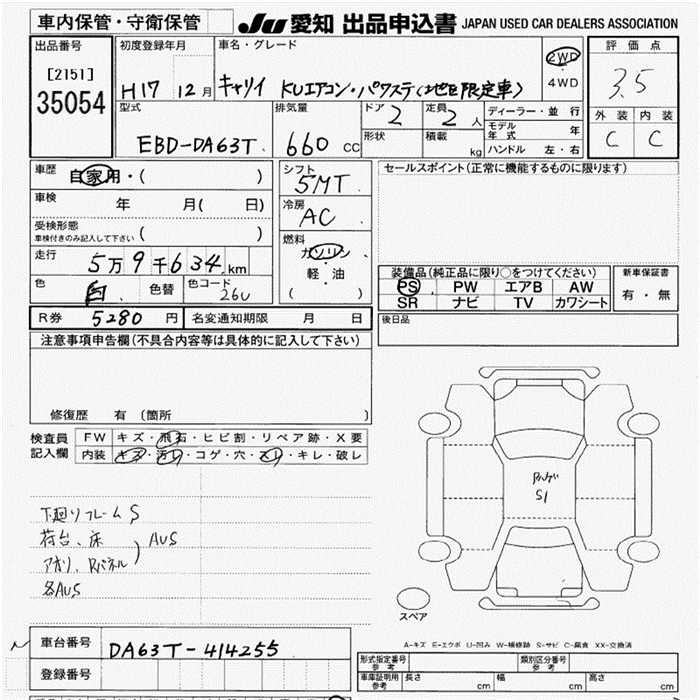 車内保管・守衛保管
JU 愛知 出品申込書 JAPAN USED CAR DEALERS ASSOCIATION
出品番号
[2151]
35054
初度登録年月
H17 12月
車名・グレード
キャリイ KUエアコン・パワステ(地区限定車)
2WD
4WD
評価点
3.5
外装 内装
C C
型式
EBD-DA63T
排気量
660 CC
ドア 2
定員 2 人
形状
積載 kg
ディーラー・並行
モデル年式 年
ハンドル 左・右
車歴
自家用・( )
車検
年 月( 日)
受検形態
車検付きのみ記入して下さい ( )
走行
5万9千634 km
色 白 色替 色コード 26U
シフト
5MT
冷房
AC
燃料
ガソリン
軽・油
( )
セールスポイント(正常に機能するものに限ります)
装備品(純正品に限り○をつけてください)
PS PW エアB AW
SR ナビ TV カワシート
新車保証書
有・無
R券 5280 円 名変通知期限 月 日
後日品
注意事項申告欄(不具合内容等は具体的に記入して下さい)
修復歴 有 (箇所 )
検査員
記入欄
FW キズ・飛石・ヒビ割・リペア跡・X要
内装 キズ・汚れ・コゲ・穴・スレ・キレ・破レ
下廻りフレームS
荷台、床
AUS
アオリ、Rパネル
各AUS
S1
スペア
A-キズ E-エクボ U-凹み W-補修跡 S-サビ C-腐食 XX-交換済
車台番号 DA63T-414255
登録番号
形式指定番号
参考
類別区分番号
参考
車庫証明用
参考
長さ cm 幅 cm 高さ cm